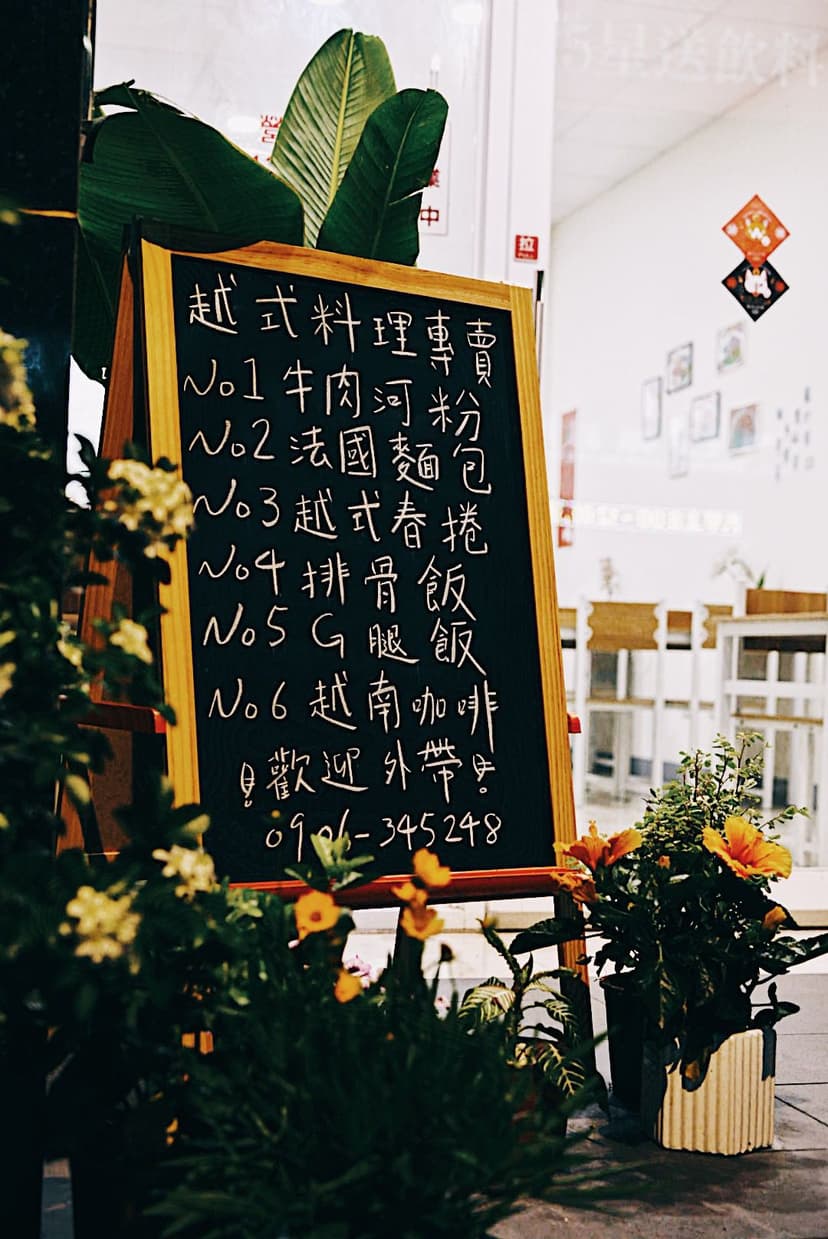 5星送飲料
營業中
拉
越式料理專賣
No1 牛肉河粉
No2 法國麵包
No3 越式春捲
No4 排骨飯
No5 G腿飯
No6 越南咖啡
!歡迎外帶!
0906-345248